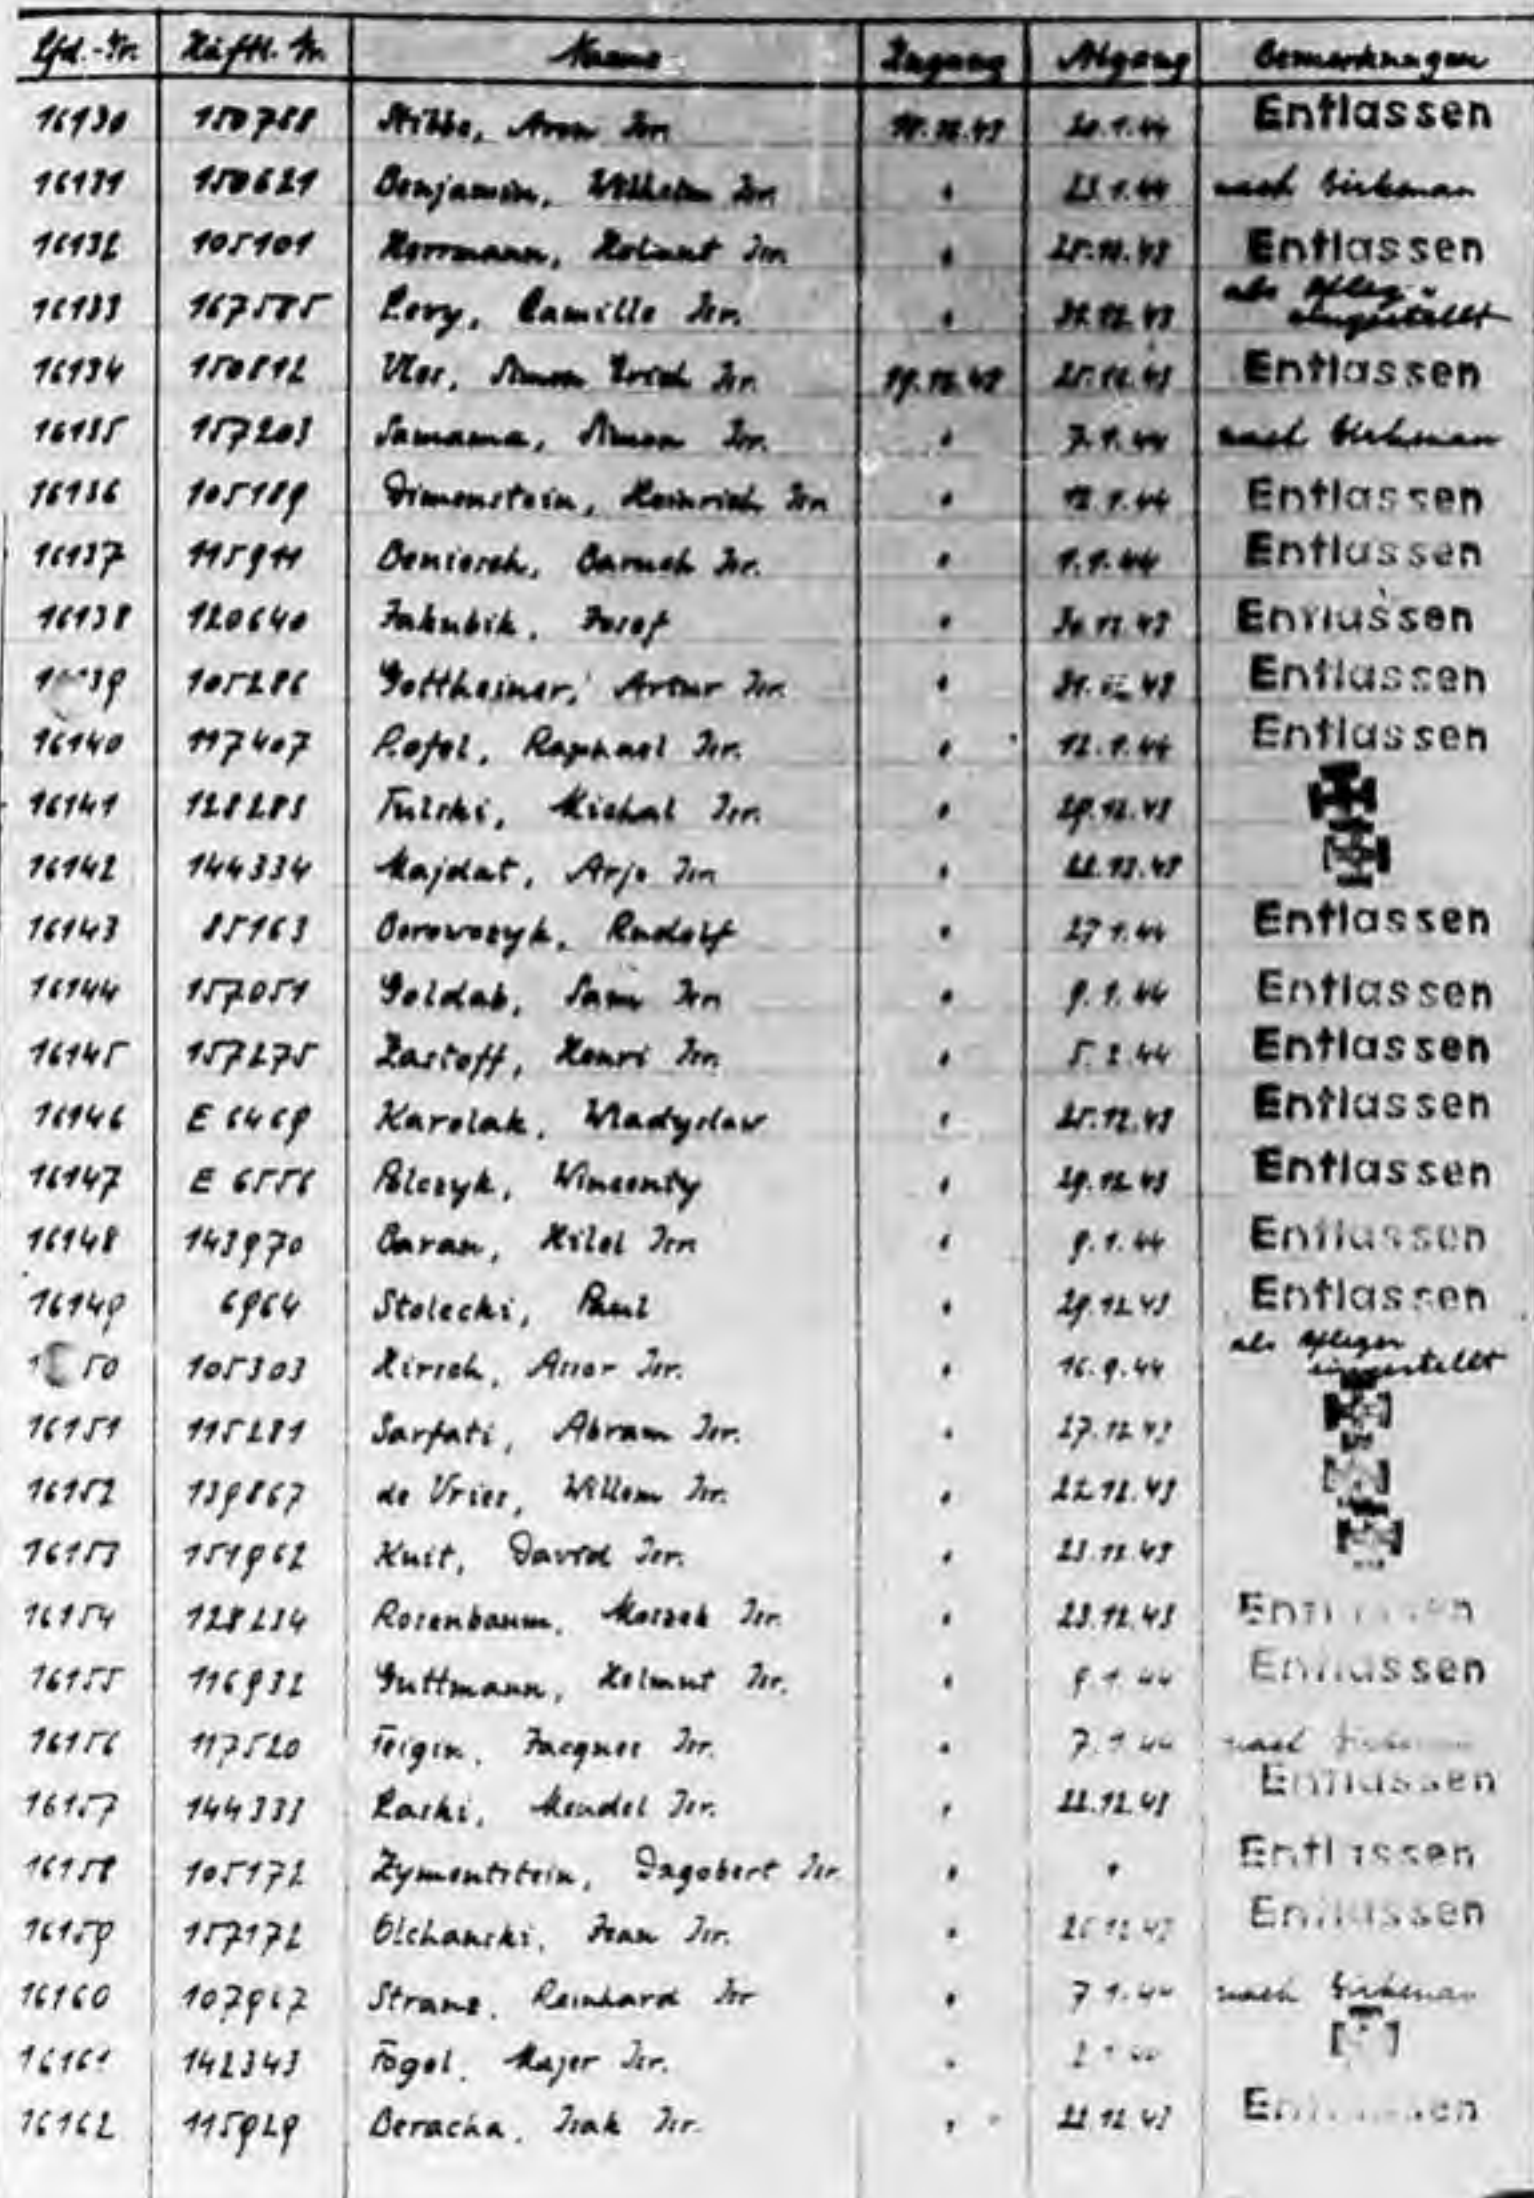 Lfd.-Nr. Häftl. Nr. Name Zugang Abgang Bemerkungen
16130 150788 Stibbe, Aron Isr. 18.12.43 20.1.44 Entlassen
16131 150621 Benjamin, Wilhelm Isr. " 23.1.44 nach Birkenau
16132 105101 Herrmann, Helmut Isr. " 25.12.43 Entlassen
16133 167585 Levy, Camille Isr. " 12.43 als Pfleger eingestellt
16134 150812 Vles, Simon Erich Isr. 19.12.43 25.12.43 Entlassen
16135 157203 Samama, Simon Isr. " 7.1.44 nach Birkenau
16136 105189 Dimenstein, Heinrich Isr. " 12.1.44 Entlassen
16137 115911 Beniesch, Baruch Isr. " 1.1.44 Entlassen
16138 120640 Jakubik, Josef " 30.12.43 Entlassen
39 105286 Gottheiner, Artur Isr. " 31.12.43 Entlassen
16140 117407 Rofel, Raphael Isr. " 12.1.44 Entlassen
16141 128283 Fulski, Michal Isr. " 29.12.43
16142 144334 Majdat, Arje Isr. " 22.12.43
16143 85163 Borowczyk, Rudolf " 27.1.44 Entlassen
16144 157051 Goldab, Sam Isr. " 9.1.44 Entlassen
16145 157275 Zastoff, Henri Isr. " 5.2.44 Entlassen
16146 E 6469 Karolak, Wladyslaw " 25.12.43 Entlassen
16147 E 6556 Polczyk, Wincenty " 29.12.43 Entlassen
16148 143970 Baran, Hilel Isr. " 9.1.44 Entlassen
16149 6964 Stolecki, Paul " 29.12.43 Entlassen
50 105303 Hirsch, Isr. " 16.9.44 als Pfleger eingestellt
16151 115281 Sarfati, Abram Isr. " 27.12.43
16152 139867 de Vries, Willem Isr. " 22.12.43
16153 151962 Kuit, David Isr. " 23.12.43
16154 128234 Rosenbaum, Moszek Isr. " 23.12.43 Entlassen
16155 116932 Guttmann, Helmut Isr. " 9.1.44 Entlassen
16156 117520 Feigin, Jacques Isr. " 7.1.44 nach Birkenau
16157 144333 Laski, Mendel Isr. " 22.12.43 Entlassen
16158 105172 Zymentstein, Dagobert Isr. " " Entlassen
16159 157172 Olchanski, Jean Isr. " 12.43 Entlassen
16160 107967 Strans, Reinhard Isr. " 7.1.44 nach Birkenau
16161 142343 Fogel, Majer Isr. "
16162 115929 Beracha, Isak Isr. " 22.12.43 Entlassen